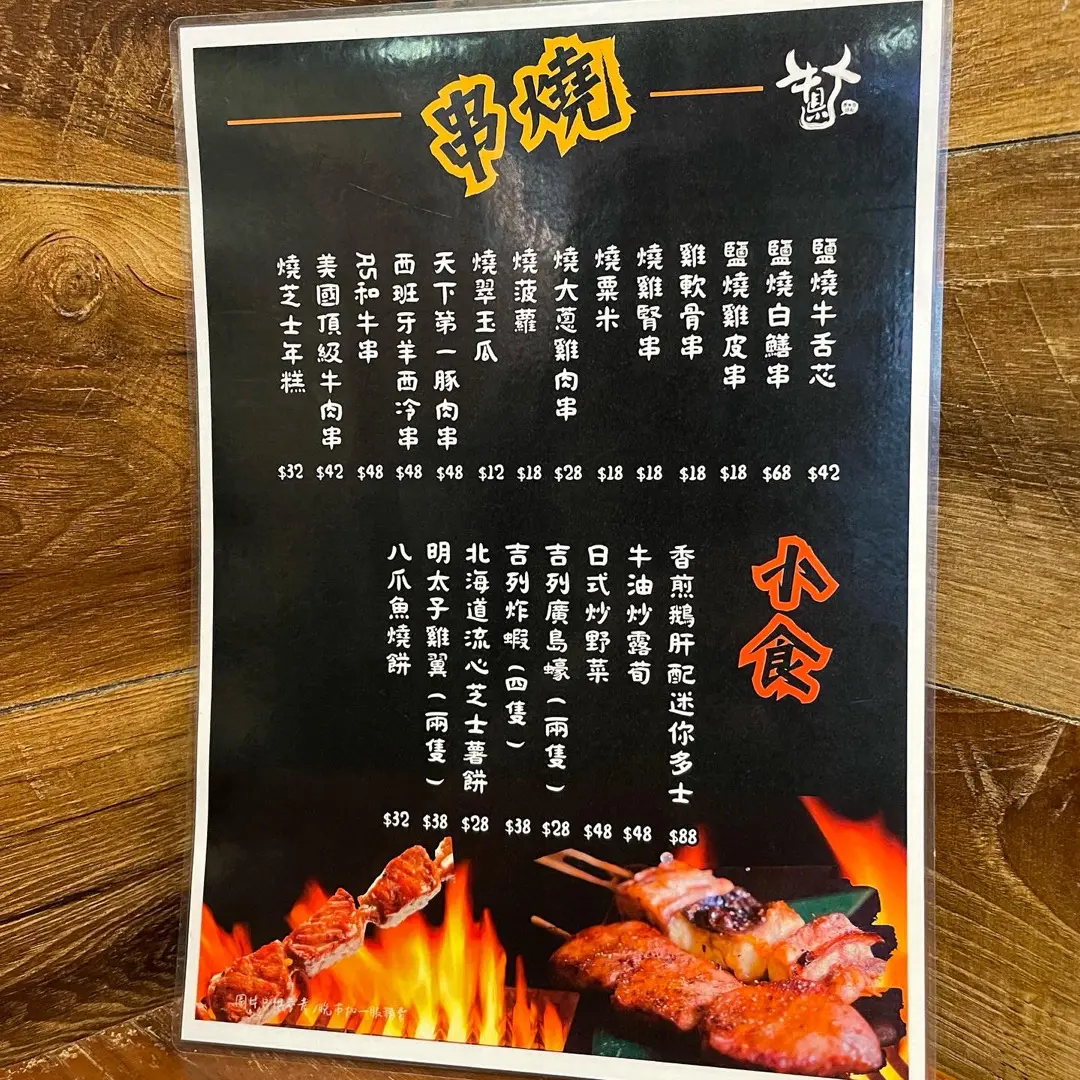 串燒
鹽燒牛舌芯 $42
鹽燒白鱔串 $68
鹽燒雞皮串 $18
雞軟骨串 $18
燒雞腎串 $18
燒粟米 $18
燒大蔥雞肉串 $28
燒菠蘿 $18
燒翠玉瓜 $12
天下第一豚肉串 $48
西班牙羊西冷串 $48
A5和牛串 $48
美國頂級牛肉串 $42
燒芝士年糕 $32
小食
香煎鵝肝配迷你多士 $88
牛油炒露荀 $48
日式炒野菜 $48
吉列廣島蠔(兩隻) $28
吉列炸蝦(四隻) $38
北海道流心芝士薯餅 $28
明太子雞翼(兩隻) $38
八爪魚燒餅 $32